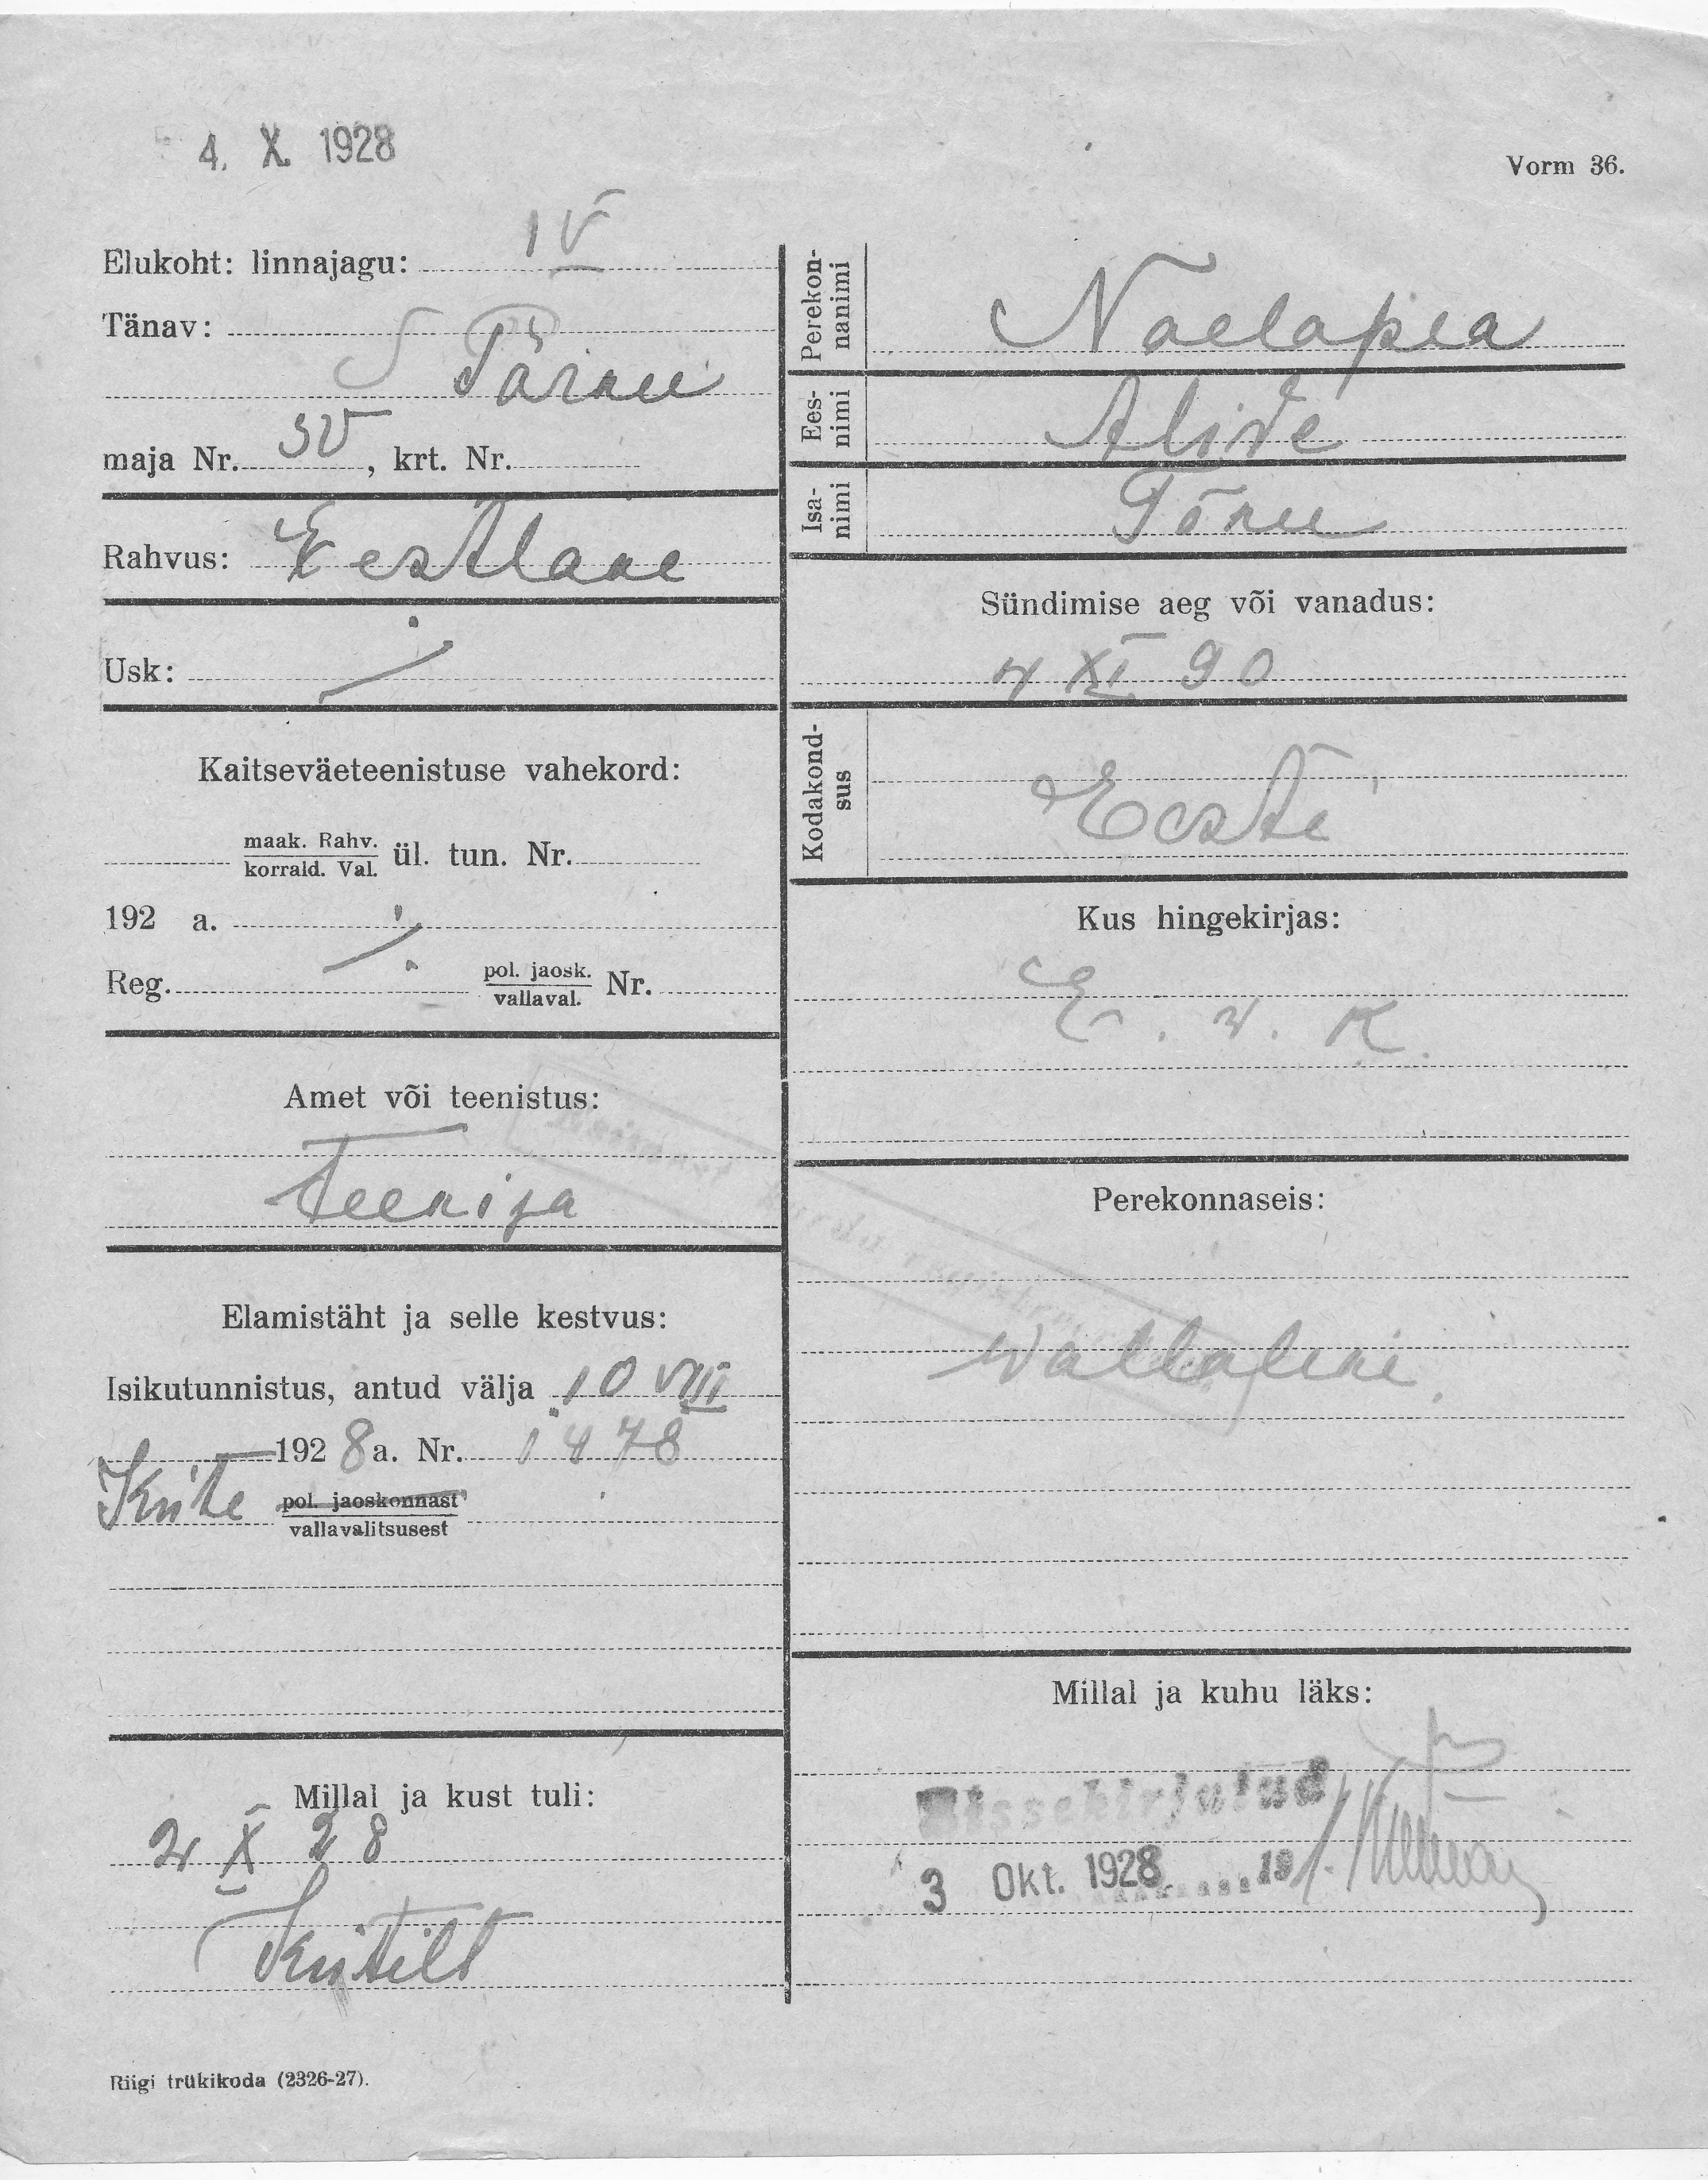 4. X. 1928
Vorm 36.
Elukoht: linnajagu: IV
Tänav: S Pärnu
maja Nr. 30, krt. Nr.
Rahvus: Eestlane
Usk:
Kaitseväeteenistuse vahekord:
maak. Rahv.
korrald. Val. ül. tun. Nr.
192 a.
Reg. pol. jaosk.
vallaval. Nr.
Amet või teenistus:
Teenija
Elamistäht ja selle kestvus:
Isikutunnistus, antud välja 10 VIII
1928 a. Nr. 1478
pol. jaoskonnast
vallavalitsusest
Millal ja kust tuli:
2 X 28
Riigi trükikoda (2326-27).
Perekon-
nanimi
Naelapea
Ees-
nimi
Alide
Isa-
nimi
Tõnu
Sündimise aeg või vanadus:
4 XI 90
Kodakond-
sus
Eesti
Kus hingekirjas:
E. v. K.
Perekonnaseis:
Wallaline.
Millal ja kuhu läks:
Sissekirjutud
3 Okt. 1928 19